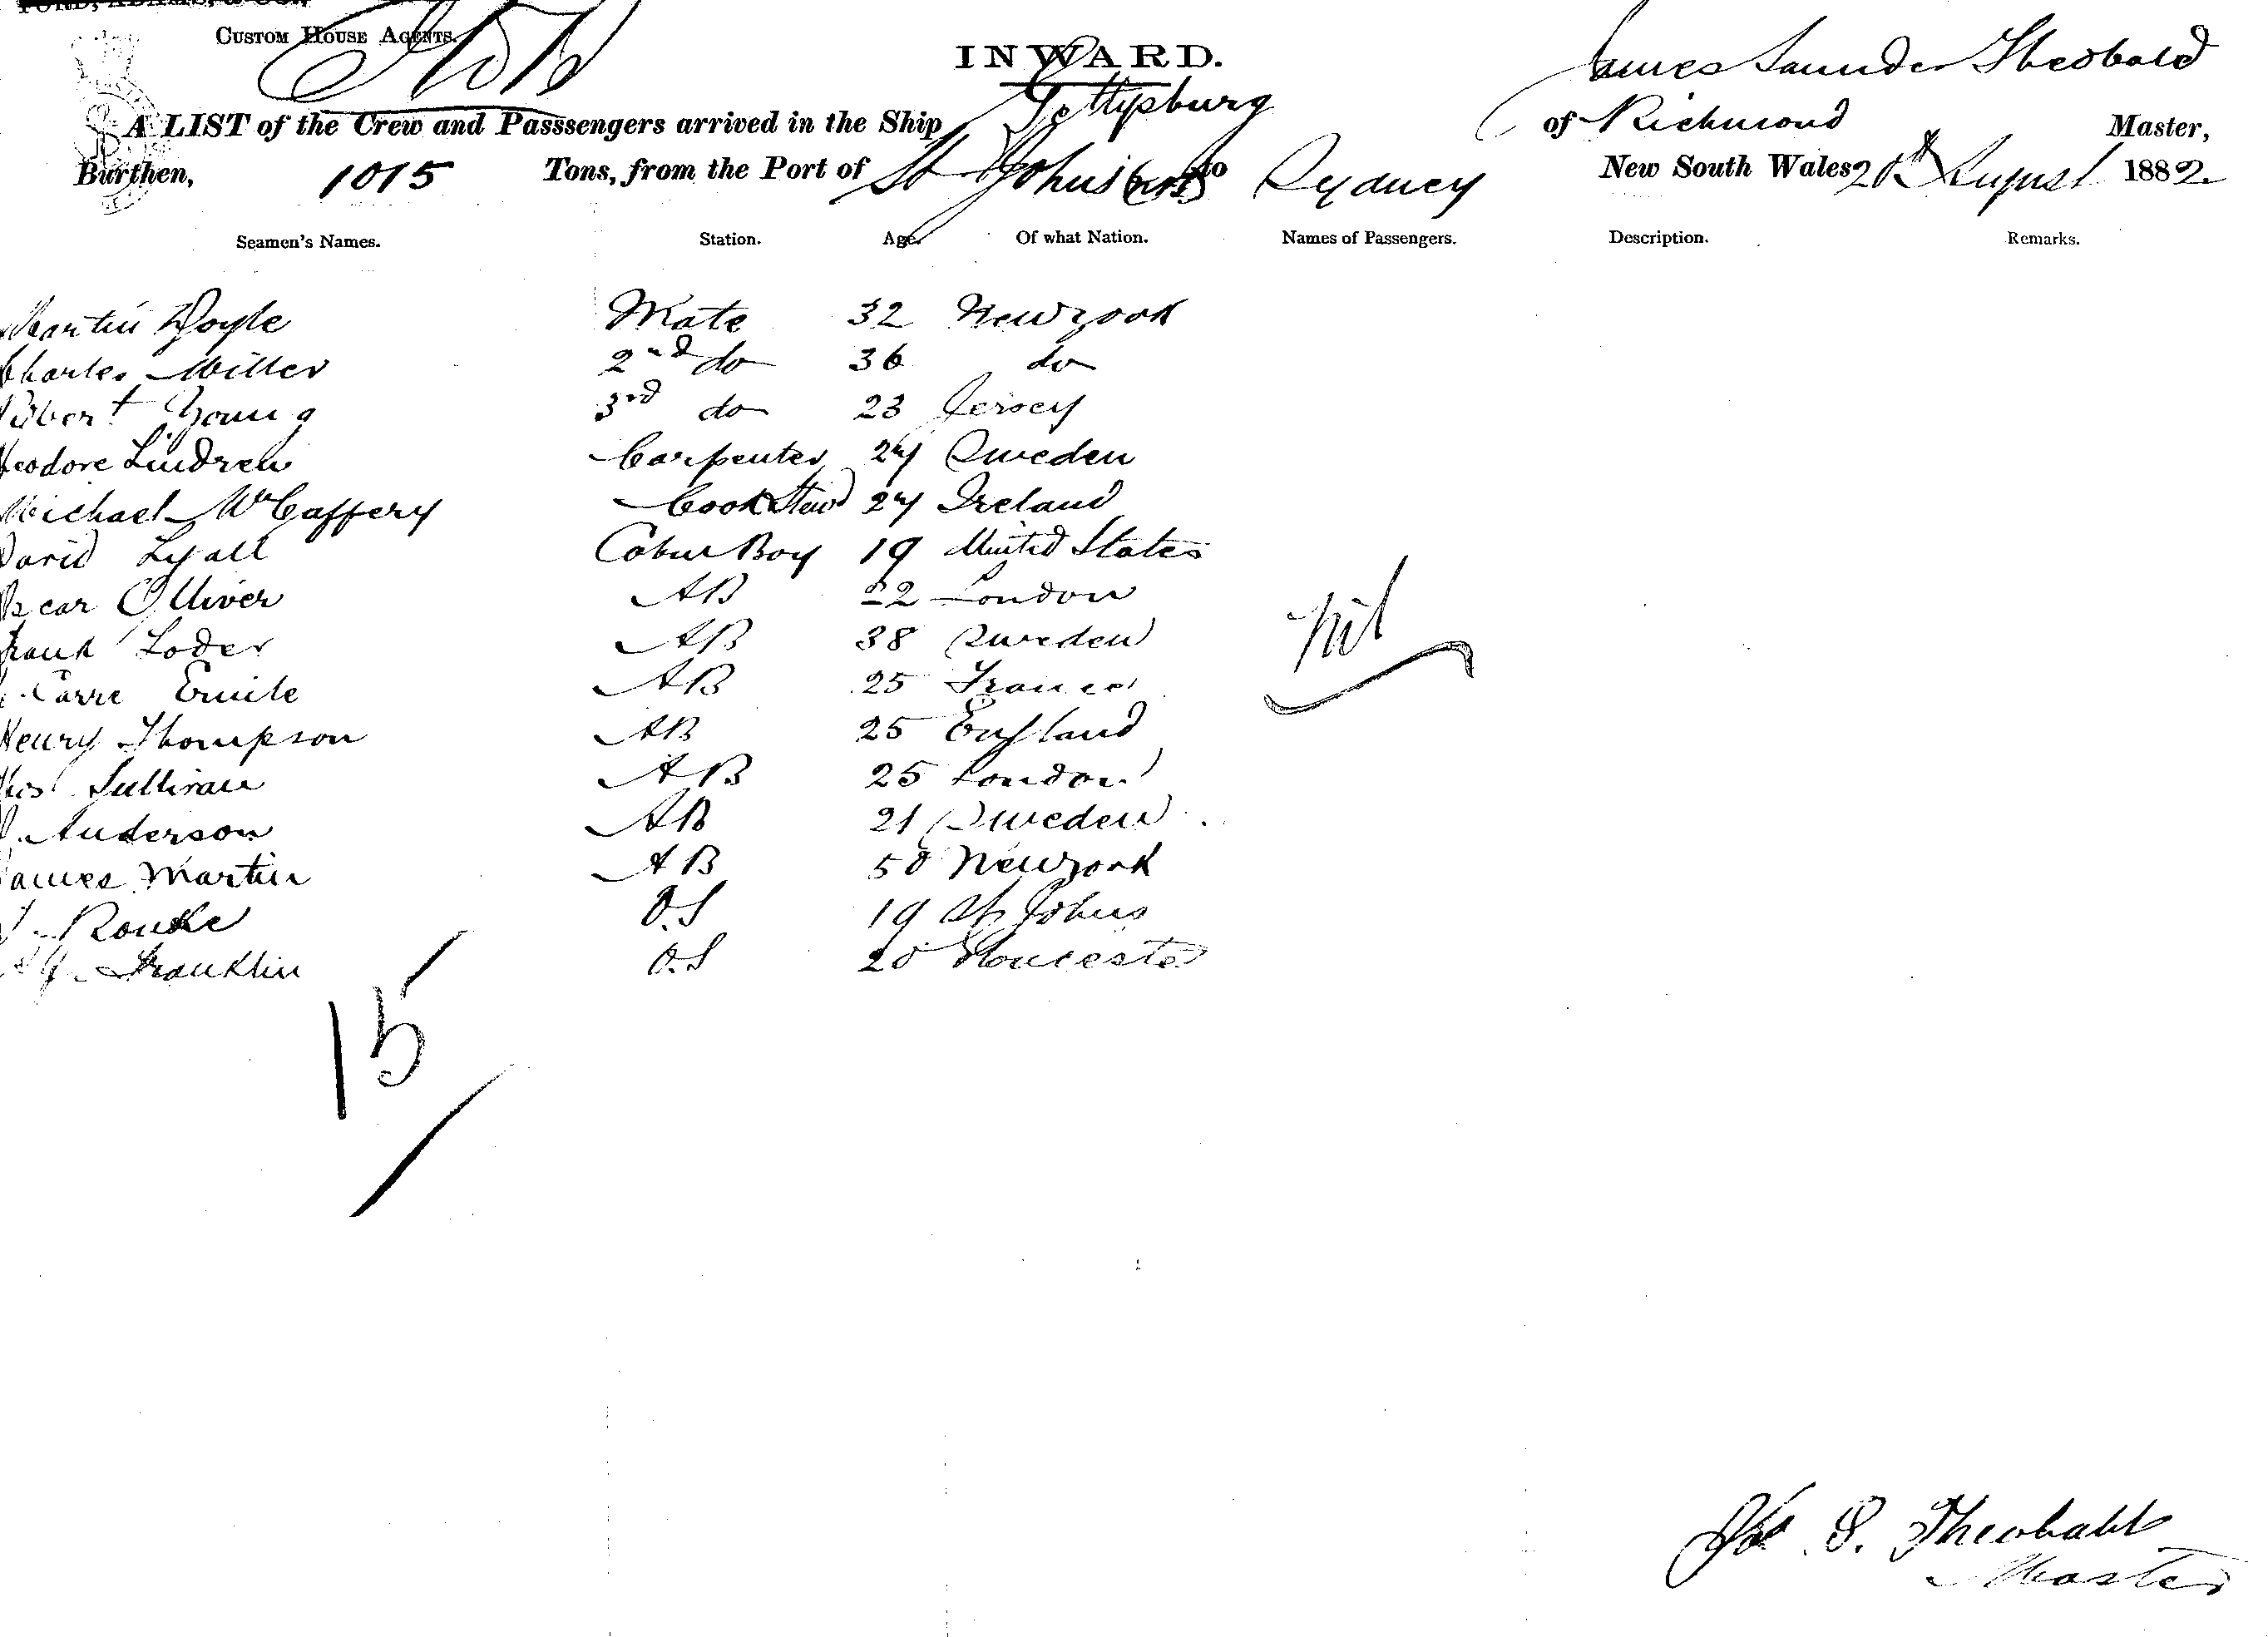 FORD, ADAMS, & CO.,
CUSTOM HOUSE AGENTS.
INWARD.
James Saunder Theobald
A LIST of the Crew and Passsengers arrived in the Ship Gettysburg of Richmond Master,
Burthen, 1015 Tons, from the Port of St Johns to Sydney New South Wales 20th August 1882
Seamen's Names. Station. Age. Of what Nation. Names of Passengers. Description. Remarks.
Martin Doyle Mate 32 Newyook
Charles Miller 2nd do 36 do
Robert Young 3rd do 23 Jersey
Theodore Lindren Carpenter 24 Sweden
Michael McCaffery Cook Stewd 24 Ireland
David Lyall Boy 19 United States
Oscar Olliver AB 22 London
Frank Loder AB 38 Sweden
Carre Emile AB 25 France
Henry Thompson AB 25 England
Sullivan AB 25 London
Anderson AB 21 Sweden
James Martin AB 50 Newyork
Rourke O.S 19 St Johns
Franklin O.S 20 Gloucester
Nil
15
S. Theobald
Master